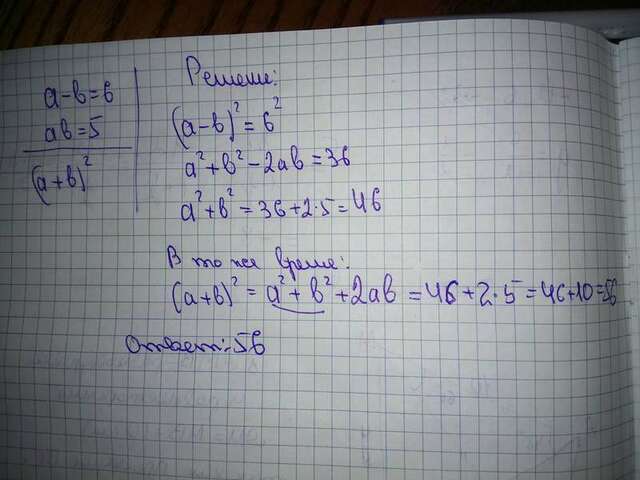 a-b=6
ab=5
(a+b)²
Решение:
(a-b)²=6²
a²+b²-2ab=36
a²+b²=36+2·5=46
В то же время:
(a+b)²=a²+b²+2ab=46+2·5=46+10=56
Ответ: 56